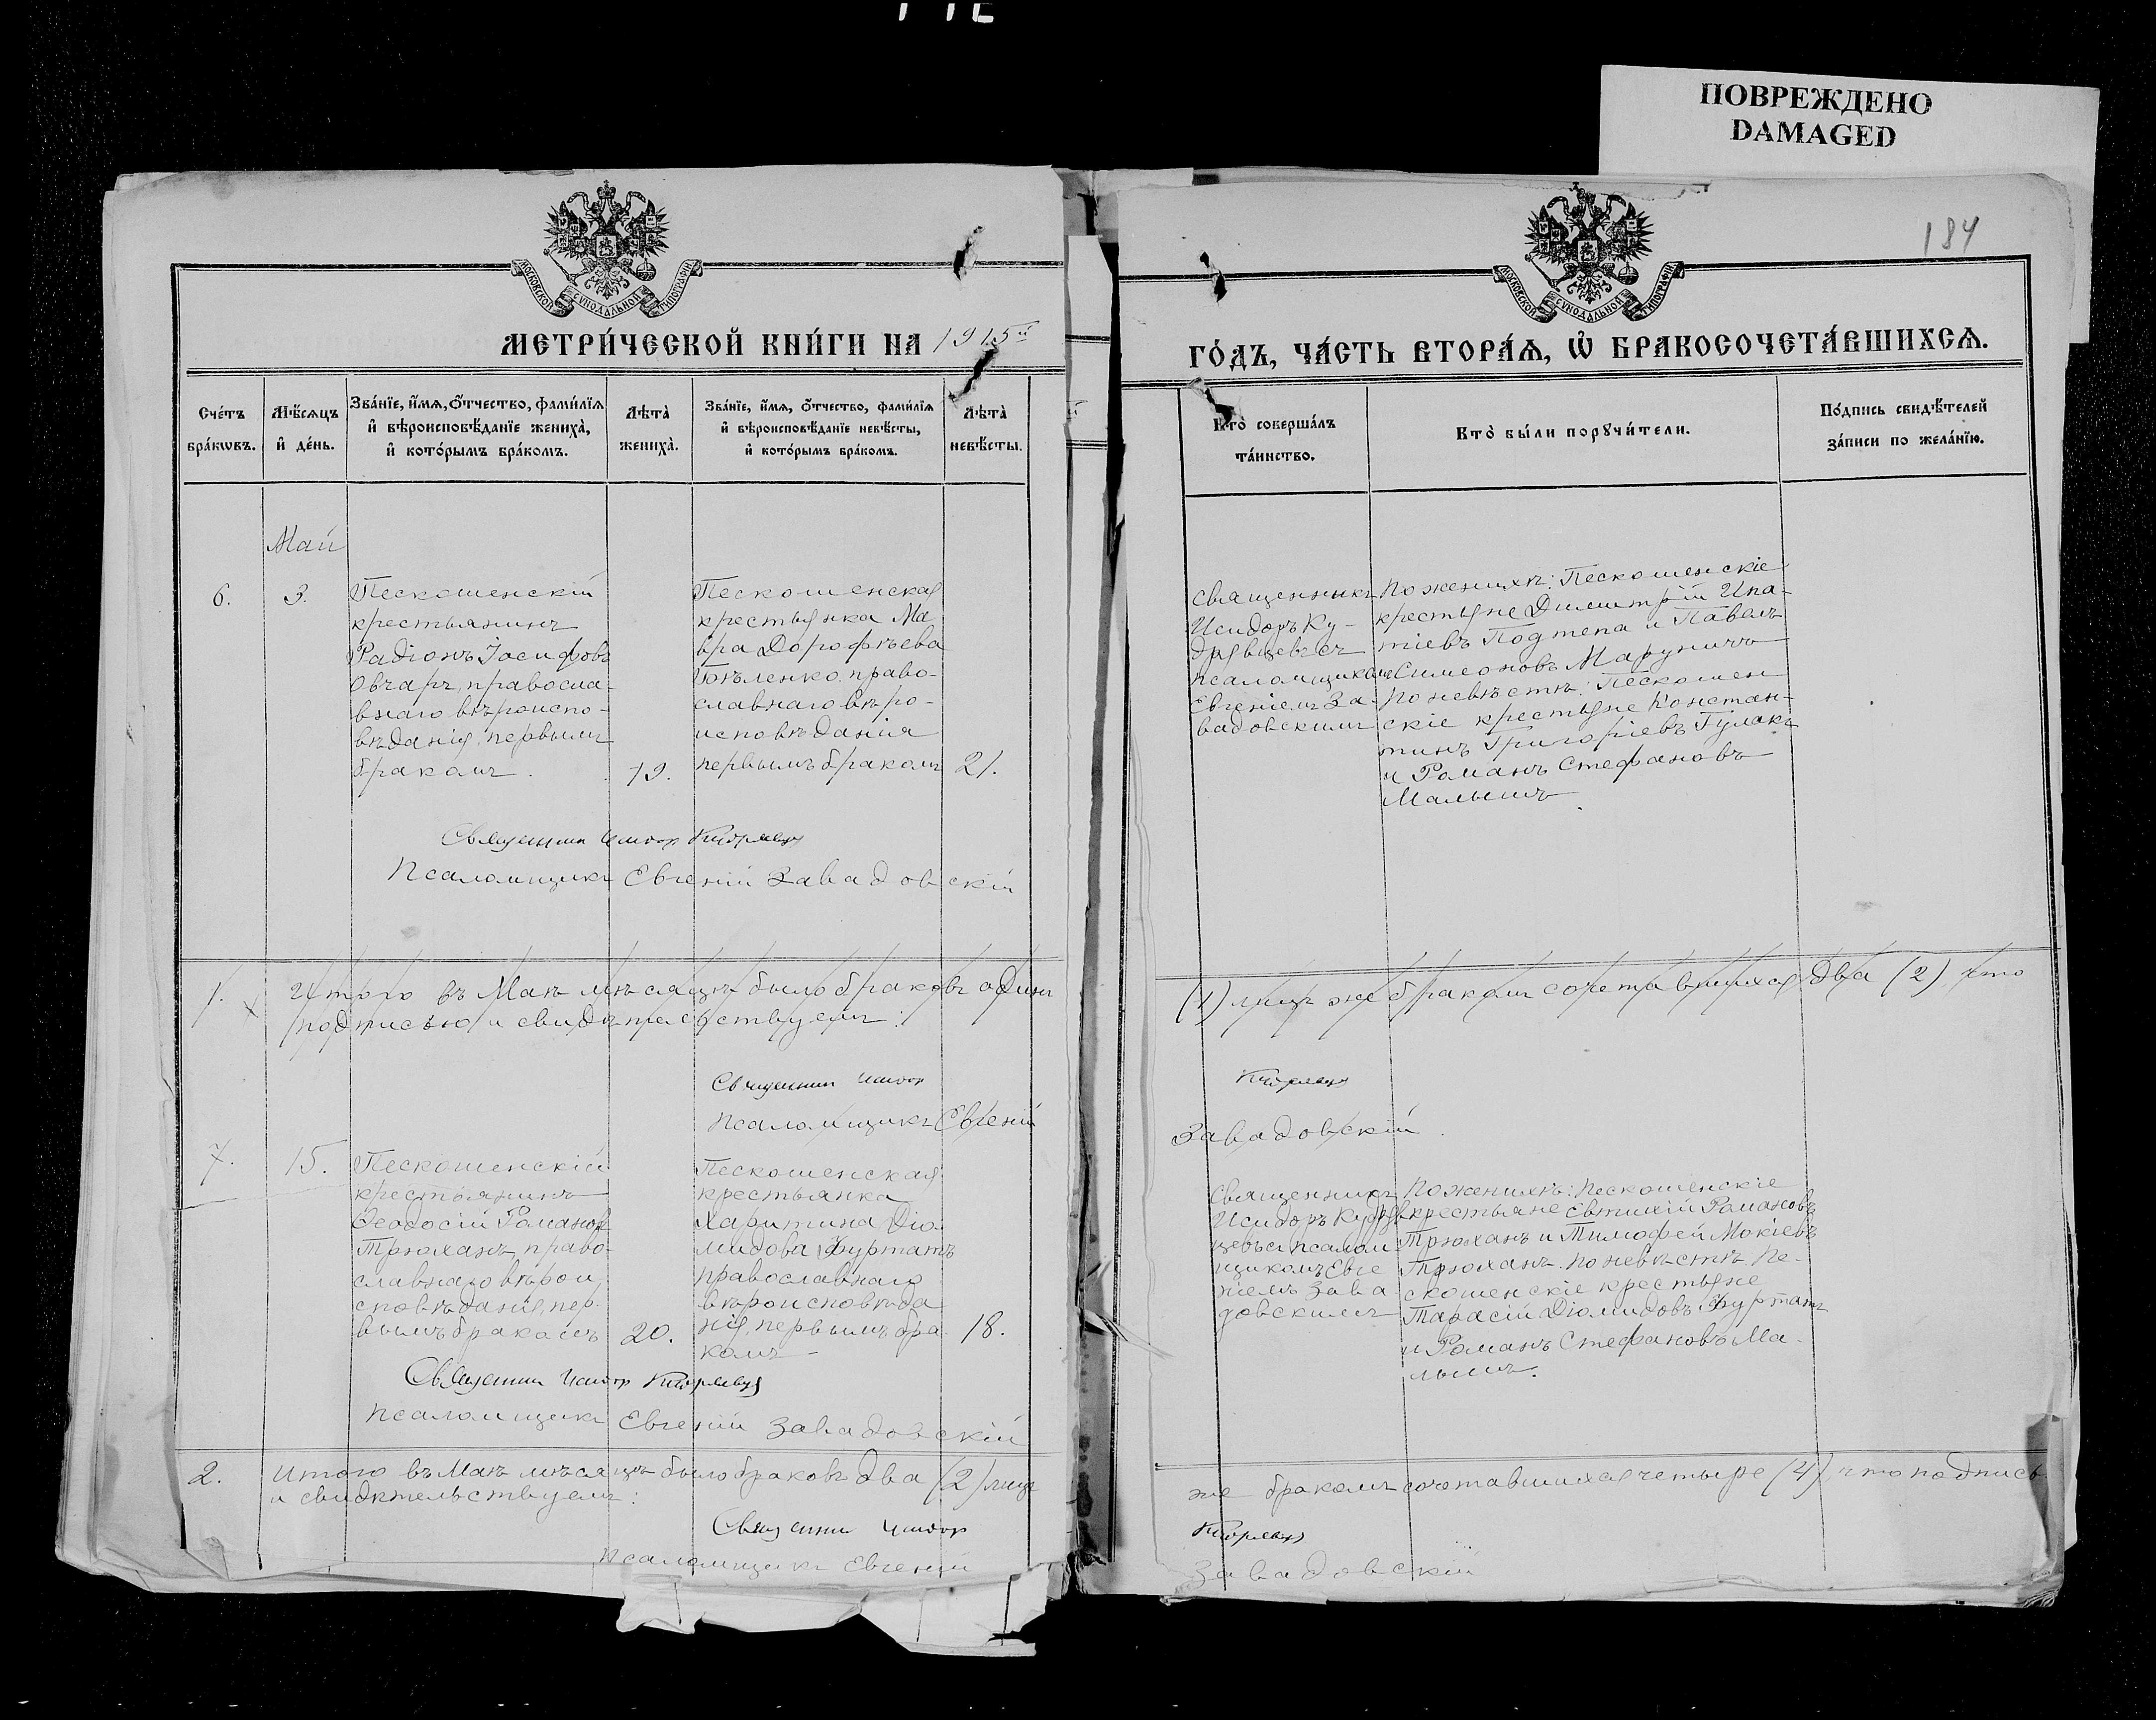 ПОВРЕЖДЕНО
DAMAGED
184
МОСКОВСКОЙ СѴНОДАЛЬНОЙ ТИПОГРАФІИ
МОСКОВСКОЙ СѴНОДАЛЬНОЙ ТИПОГРАФІИ
МЕТРИ́ЧЕСКОЙ КНИ́ГИ НА 1915й
ГО́ДЪ, ЧА́СТЬ ВТОРА́Ѧ, Ѡ҆ БРАКОСОЧЕТА́ВШИХСѦ.
Сче́тъ
бра́кѡвъ.
Мѣ́сяцъ
и҆ де́нь.
Зва́нїе, и҆́мѧ, ѻ҆́тчество, фами́лїѧ
и҆ вѣроисповѣ́данїе жениха̀,
и҆ кото́рымъ бра́комъ.
Лѣта̀
жениха̀.
Зва́нїе, и҆́мѧ, ѻ҆́тчество, фами́лїѧ
и҆ вѣроисповѣ́данїе невѣ́сты,
и҆ кото́рымъ бра́комъ.
Лѣта̀
невѣ́сты.
Кто̀ соверша́лъ
та́инство.
Кто̀ бы́ли порꙋчи́тели.
По́дпись свидѣ́телей
за́писи по жела́нїю.
Май
6.
3.
Пескошенскій
крестьянинъ
Радіонъ Іосифовъ
Овчаръ, правосла-
внаго вѣроиспо-
вѣданія, первымъ
бракомъ.
19.
Пескошенская
крестьянка Ма
вра Дорофѣева
право-
славнаго вѣро-
исповѣданія
первымъ бракомъ
21.
Священникъ
Исидоръ Ку-
дрявцевъ съ
псаломщикомъ
Евгеніемъ За-
вадовскимъ
По женихѣ: Пескошенскіе
крестьяне Димитрій Ипа-
тіевъ Подтепа и Павелъ
Симеоновъ Маруничъ
По невѣстѣ: Пескошен
скіе крестьяне Констан-
тинъ Григоріевъ Гулакъ
и Романъ Стефановъ
Малышъ
Священникъ Исидоръ Кудрявцевъ
Псаломщикъ Евгеній Завадовскій
1. Итого въ Маѣ мѣсяцѣ было браковъ одинъ
(1) лицъ же бракомъ сочетавшихся два (2), что
подписью и свидѣтельствуемъ:
Священникъ Исидоръ
Кудрявцевъ
Псаломщикъ Евгеній
Завадовскій
7.
15.
Пескошенскій
крестьянинъ
Ѳеодосій Романовъ
Трюханъ, право-
славнаго вѣрои
сповѣданія, пер-
вымъ бракомъ
20.
Пескошенская
крестьянка
Харитина Діо-
мидова Фуртатъ
православнаго
вѣроисповѣда
нія, первымъ бра
комъ
18.
Священникъ
Исидоръ Кудряв
цевъ съ псалом
щикомъ Евге
ніемъ Зава
довскимъ
По женихѣ: Пескошенскіе
крестьяне Евтихій Романовъ
Трюханъ и Тимофей Мокіевъ
Трюханъ. По невѣстѣ Пе-
скошенскіе крестьяне
Тарасій Діомидовъ Фуртатъ
и Романъ Стефановъ Ма-
лышъ.
Священникъ Исидоръ Кудрявцевъ
Псаломщикъ Евгеній Завадовскій
2. Итого въ Маѣ мѣсяцѣ было браковъ два (2) лицъ
же бракомъ сочетавшихся четыре (4), что подпись
и свидѣтельствуемъ:
Священникъ Исидоръ
Кудрявцевъ
Псаломщикъ Евгеній
Завадовскій